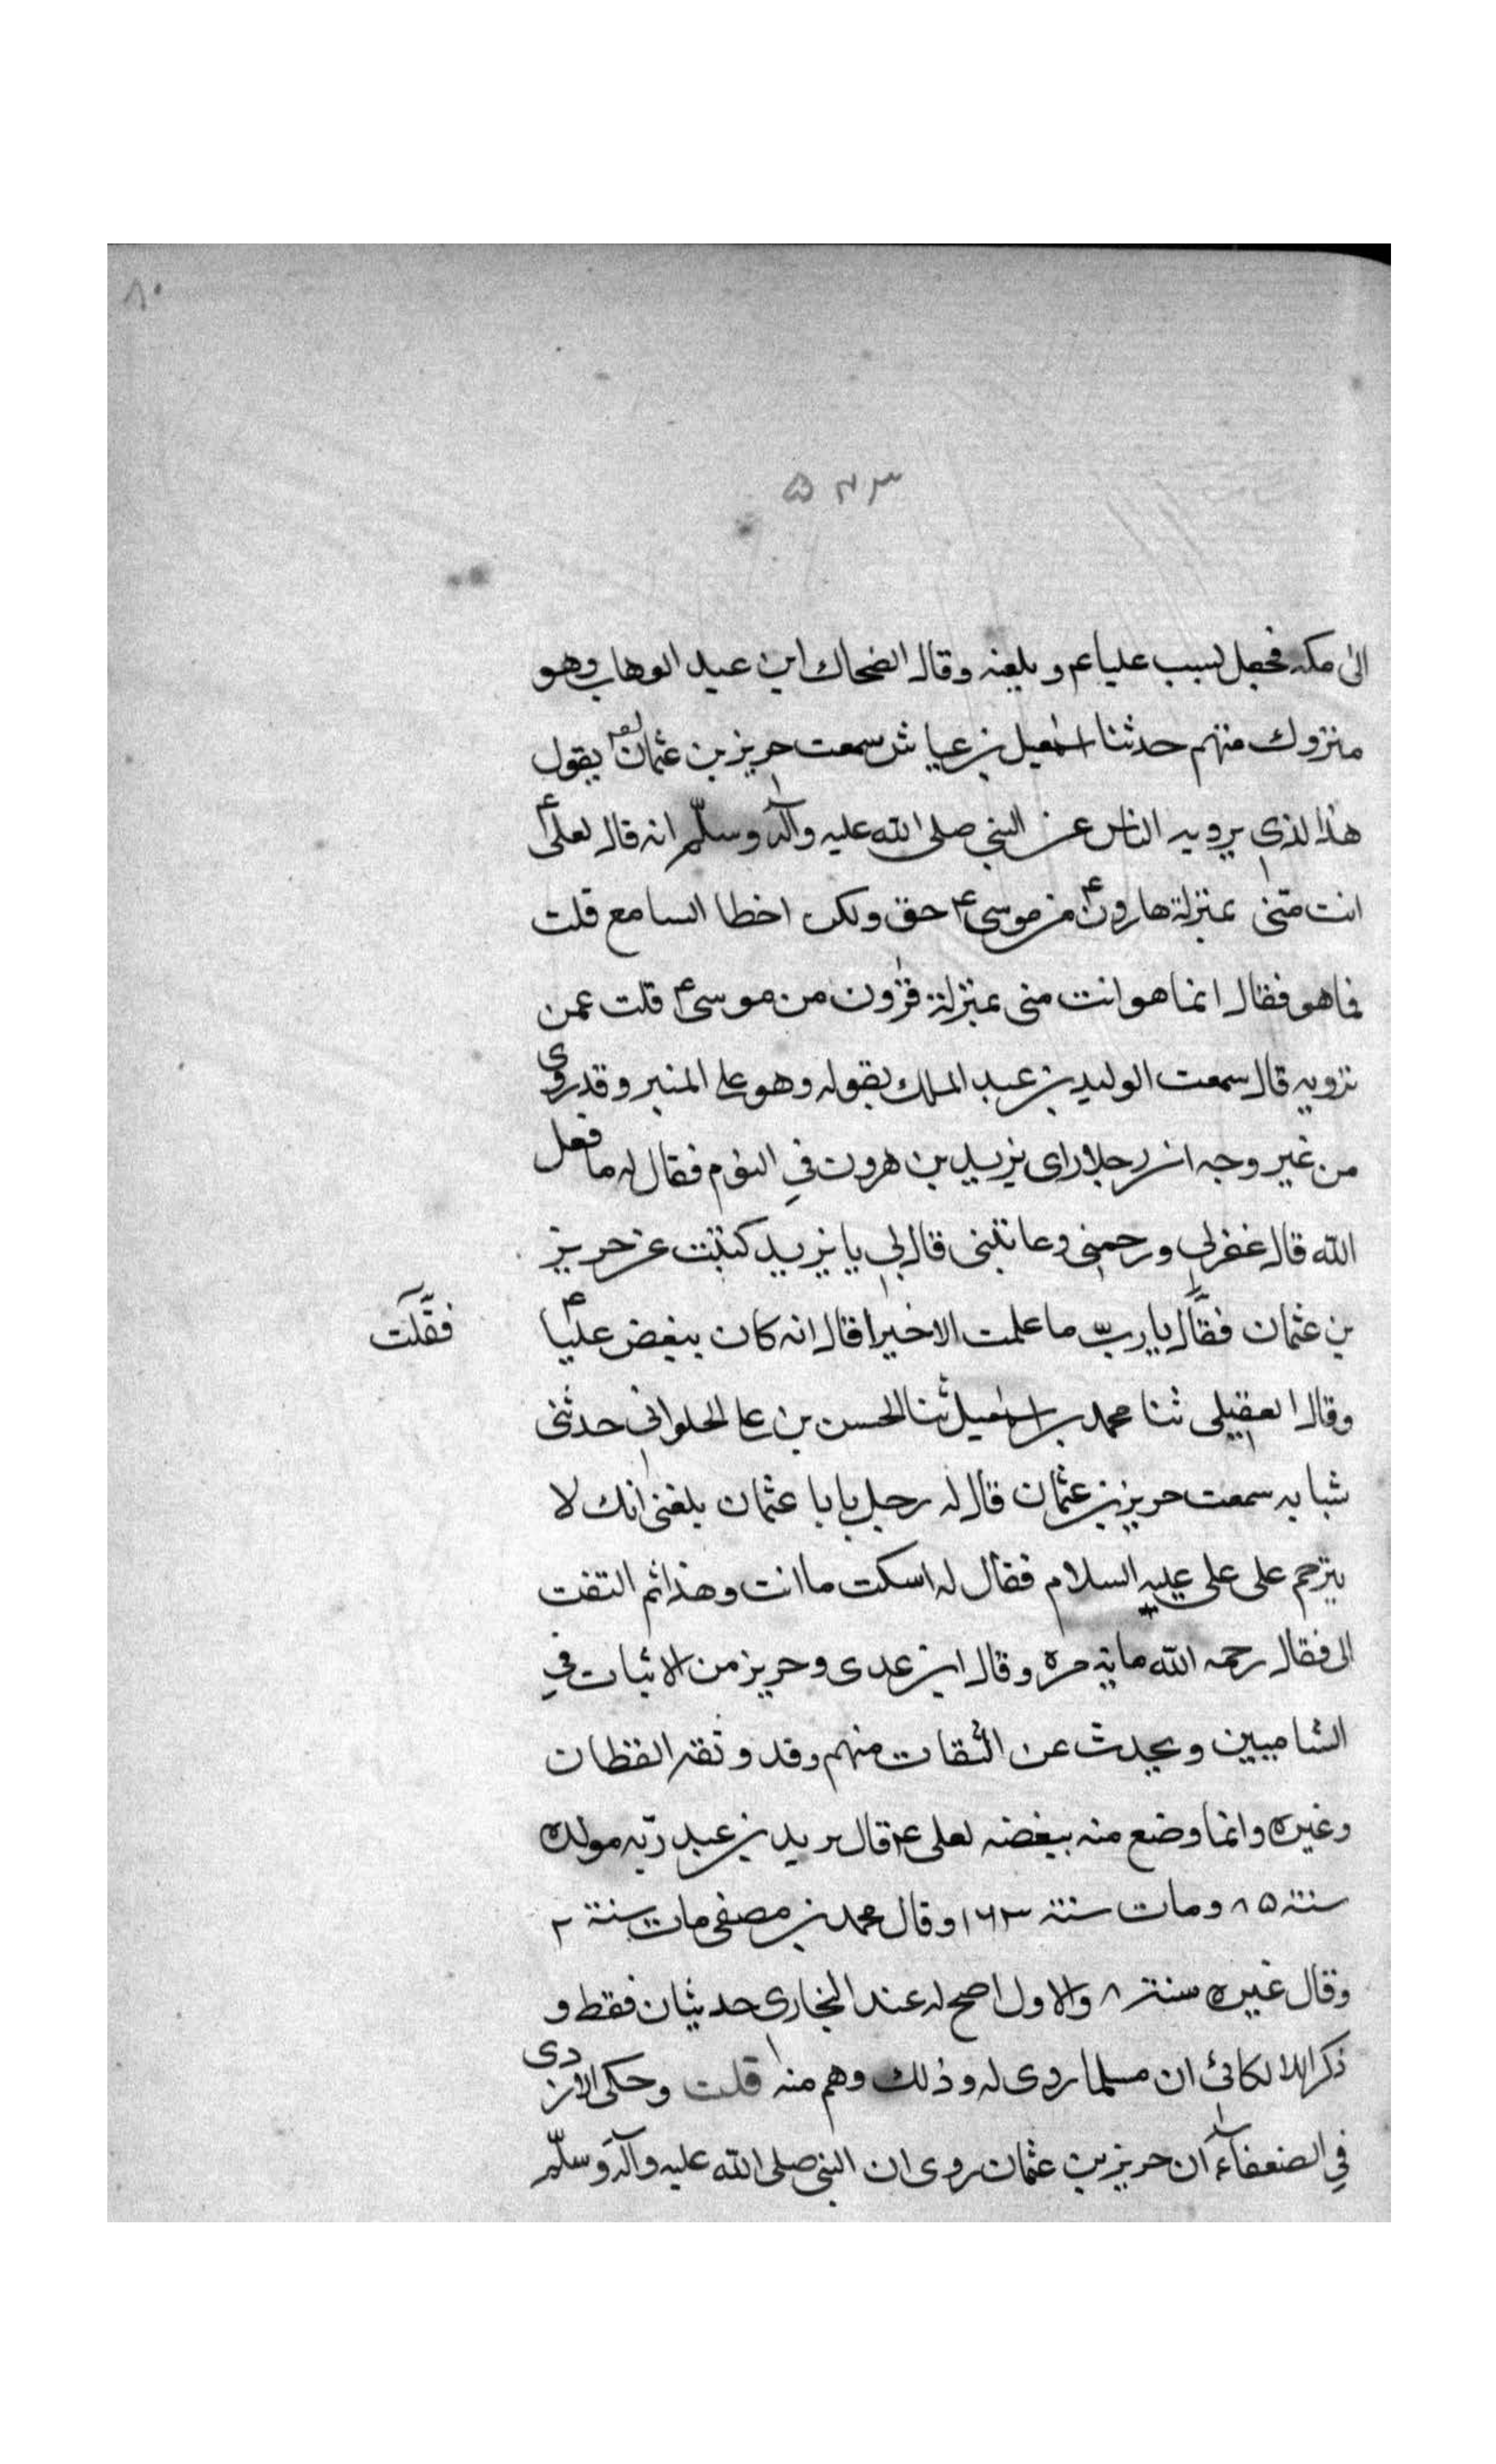 ٨٠
٥٧٣
الى مكة فجعل يسب عليا ع ويلعنه وقال الضحاك ابن عبد الوهاب وهو
متروك متهم حدثنا اسمعيل بن عياش سمعت حريز بن عثمان يقول
هذا الذى يرويه الناس عن النبي صلى الله عليه وآله وسلم انه قال لعلى ع
انت منى بمنزلة هارون ع من موسى ع حق ولكن اخطا السامع قلت
فما هو فقال انما هو انت منى بمنزلة قرون من موسى ع قلت عمن
ترويه قال سمعت الوليد بن عبد الملك يقوله وهو على المنبر وقد روى
من غير وجه ان رجلا راى يزيد بن هرون في النوم فقال له ما فعل
الله قال غفر لي ورحمنى وعاتبنى قال لي يا يزيد كتبت عن حريز
بن عثمان فقال يا رب ما علمت الا خيرا قال انه كان يبغض عليا ع
فقلت
وقال العقيلى ثنا محمد بن اسمعيل ثنا الحسن بن على الحلواني حدثنى
شبابه سمعت حريز بن عثمان قال له رجل يا با عثمان بلغنى انك لا
يترحم على على عليه السلام فقال له اسكت ما انت وهذا ثم التفت
الى فقال رحمه الله ماية مرة وقال ابن عدى وحريز من الاثبات في
الشاميين ويحدث عن الثقات منهم وقد وثقه القطان
وغيره وانما وضع منه ببغضه لعلى ع قال يزيد بن عبد ربه مولده
سنة ٨٥ ومات سنة ١٦٣ وقال محمد بن مصفى مات سنة ٢
وقال غيره سنة ٨ والاول اصح له عند البخارى حديثان فقط و
ذكر اللالكائى ان مسلما روى له وذلك وهم منه قلت وحكى الازدى
في الضعفاء ان حريز بن عثمان روى ان النبى صلى الله عليه وآله وسلم